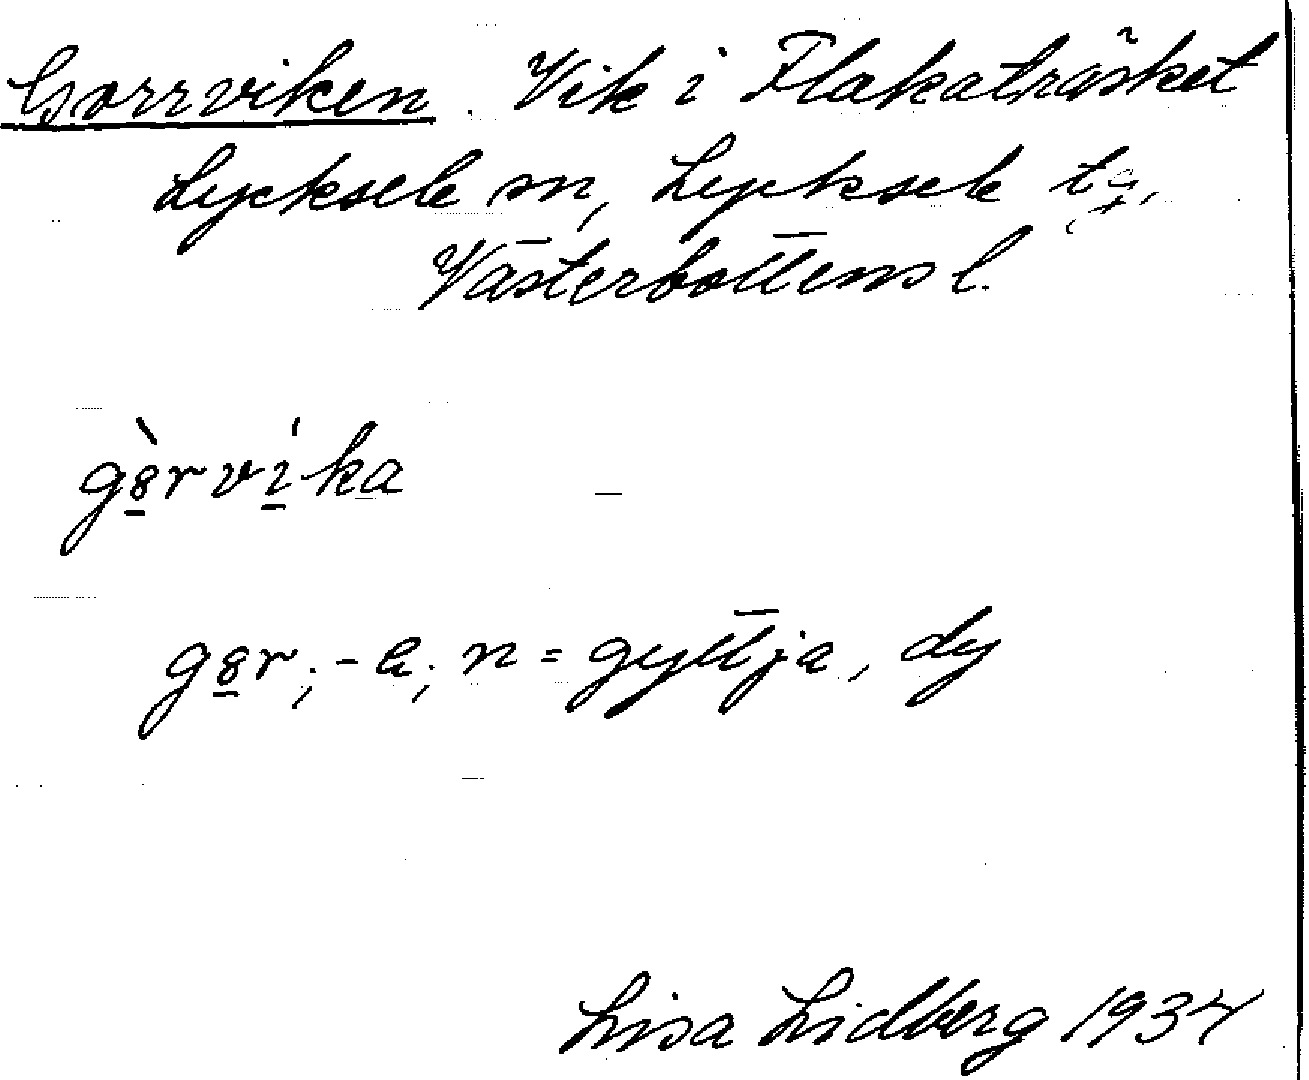 Gorrviken. Vik i Flakaträsket
Lycksele sn, Lycksele tg,
Västerbottens l.
gȣ̱̀rvı̱́ka
gȣ̱r; -a; n = gyttja, dy
Lisa Lidberg 1934